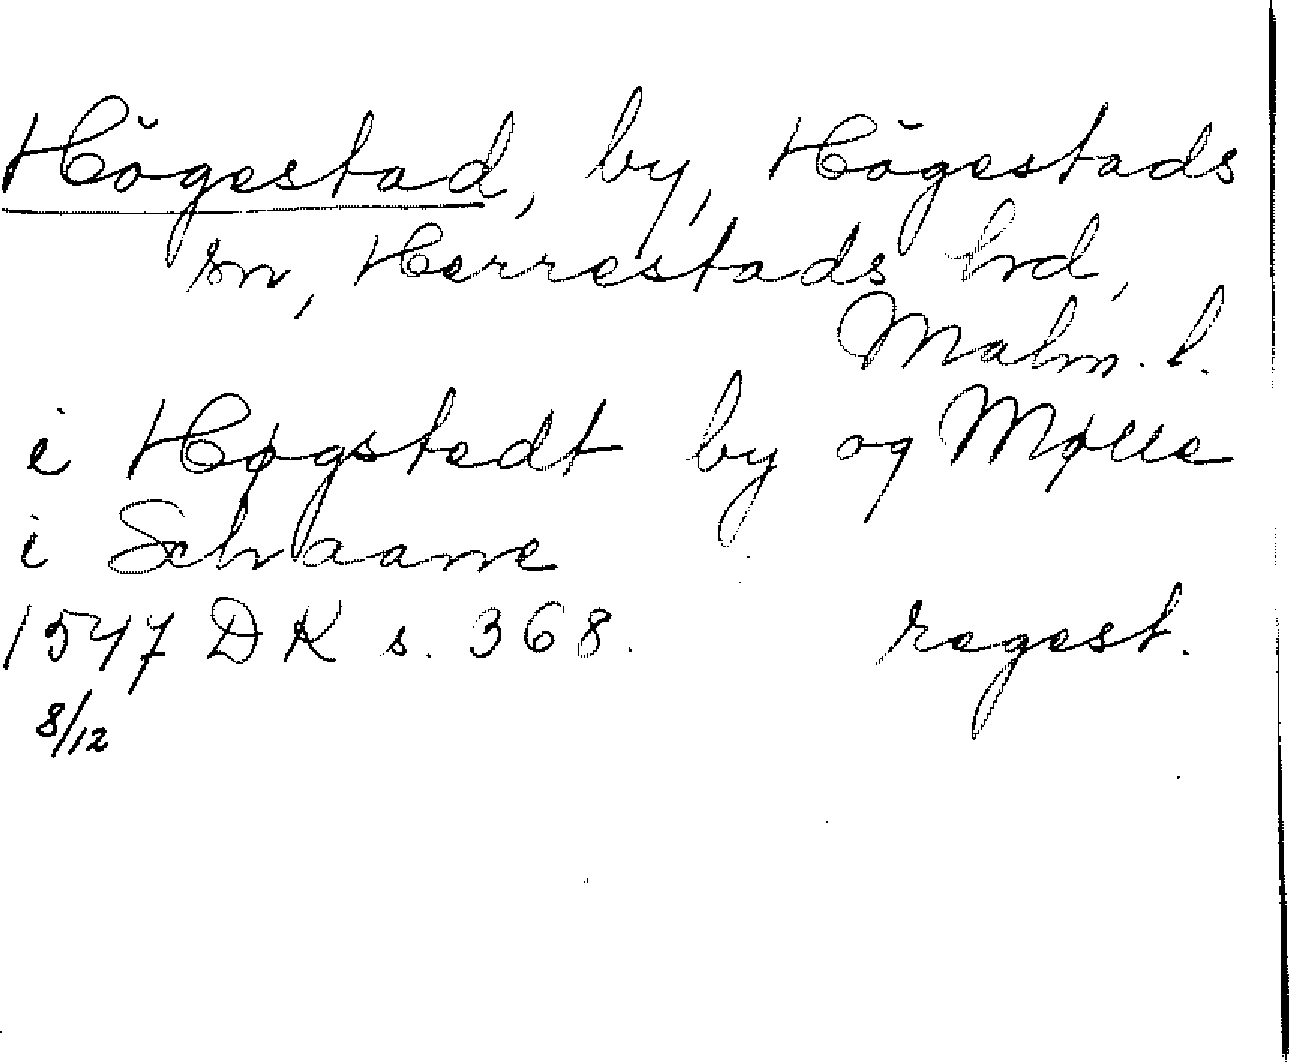 Högestad, by, Högestads
sn, Herrestads hrd,
Malm. l.
i Høgstedt by og Mølle
i Schaane
1547 DK s. 368. regest.
8/12